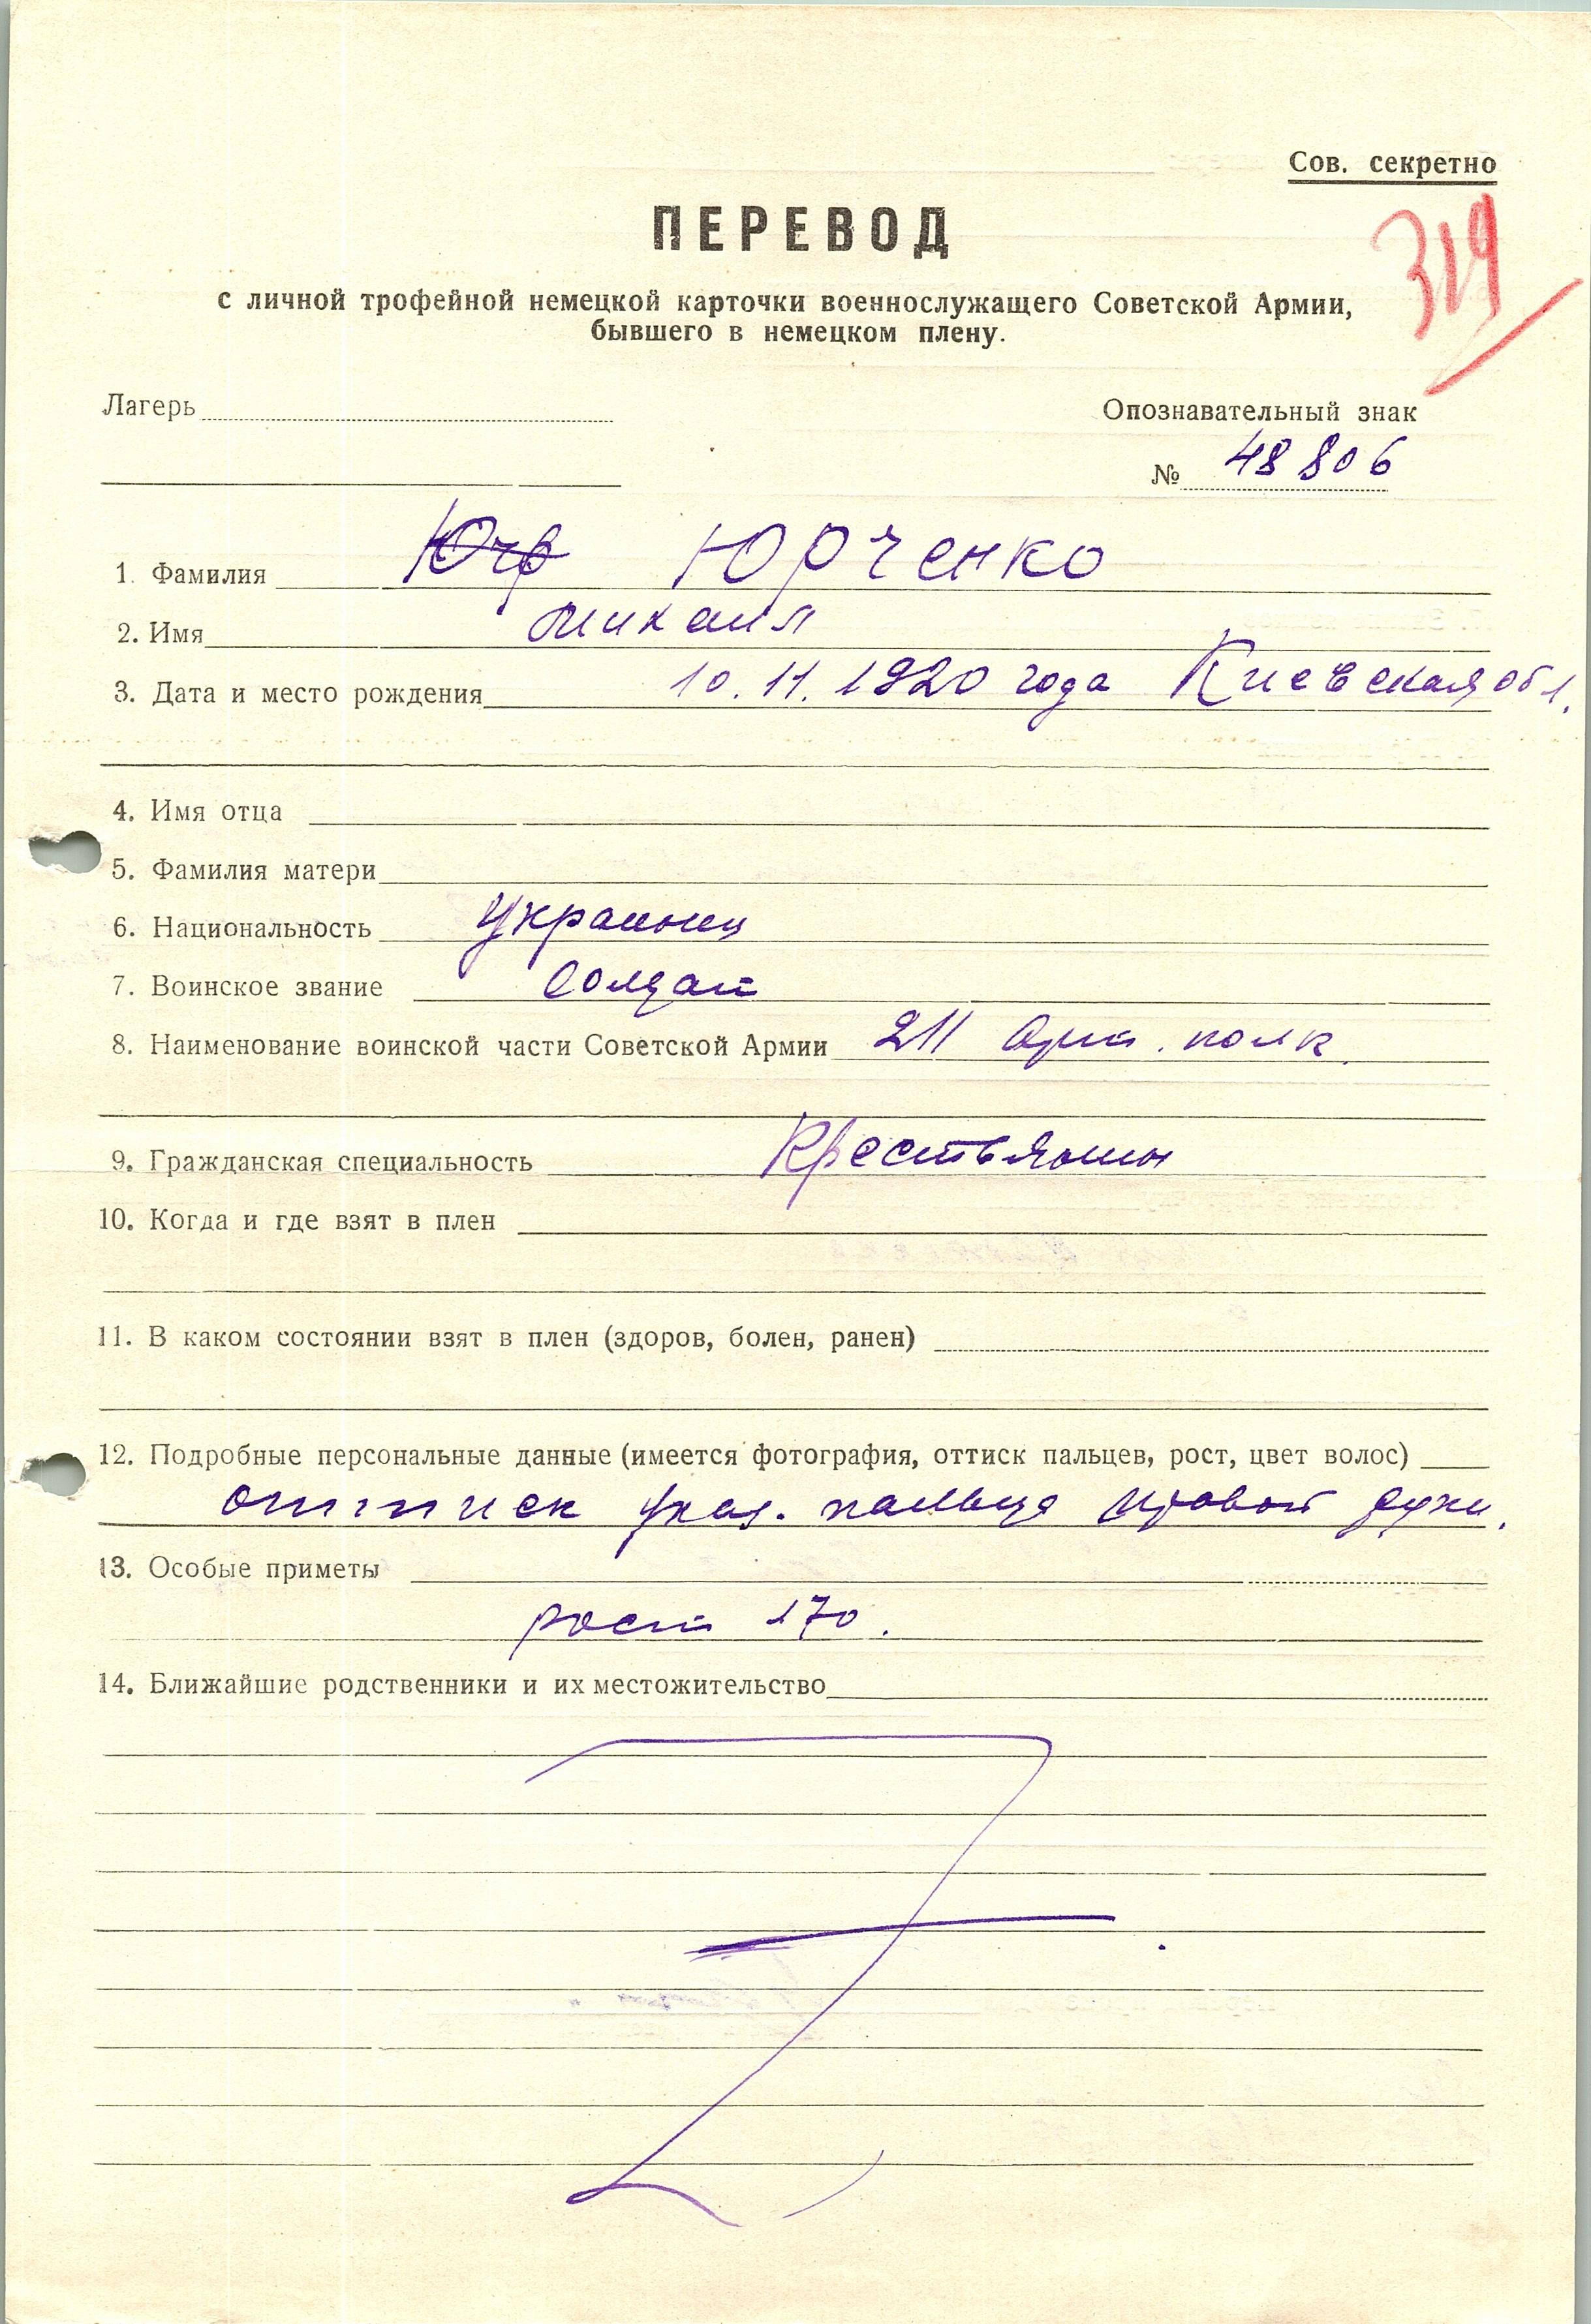 Сов. секретно
ПЕРЕВОД
319
с личной трофейной немецкой карточки военнослужащего Советской Армии,
бывшего в немецком плену.
Лагерь
Опознавательный знак
№ 48806
1. Фамилия Юрченко
2. Имя Михаил
3. Дата и место рождения 10.11.1920 года Киевская обл.
4. Имя отца
5. Фамилия матери
6. Национальность Украинец
7. Воинское звание Солдат
8. Наименование воинской части Советской Армии 211 Арт. полк.
9. Гражданская специальность Крестьянин
10. Когда и где взят в плен
11. В каком состоянии взят в плен (здоров, болен, ранен)
12. Подробные персональные данные (имеется фотография, оттиск пальцев, рост, цвет волос)
оттиск указ. пальца правой руки.
13. Особые приметы
рост 170.
14. Ближайшие родственники и их местожительство